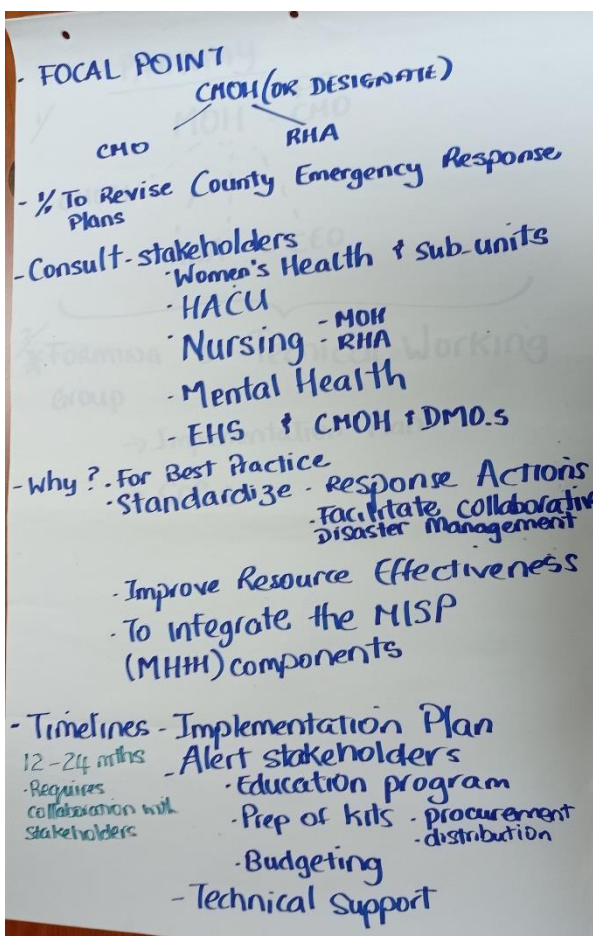 - FOCAL POINT
CMOH (OR DESIGNATE)
CMO RHA
- % To Revise County Emergency Response
Plans
- Consult - stakeholders
· Women's Health & sub-units
· HACU
· Nursing - MOH
- RHA
· Mental Health
- EHS & CMOH & DMO.s
- Why? · For Best Practice
· Standardize · Response Actions
· Facilitate collaborative
Disaster Management
· Improve Resource Effectiveness
· To integrate the MISP
(MHHH) components
- Timelines - Implementation Plan
12-24 mths - Alert stakeholders
· Requires · Education program
collaboration with · Prep of kits · procurement
stakeholders · distribution
· Budgeting
- Technical Support